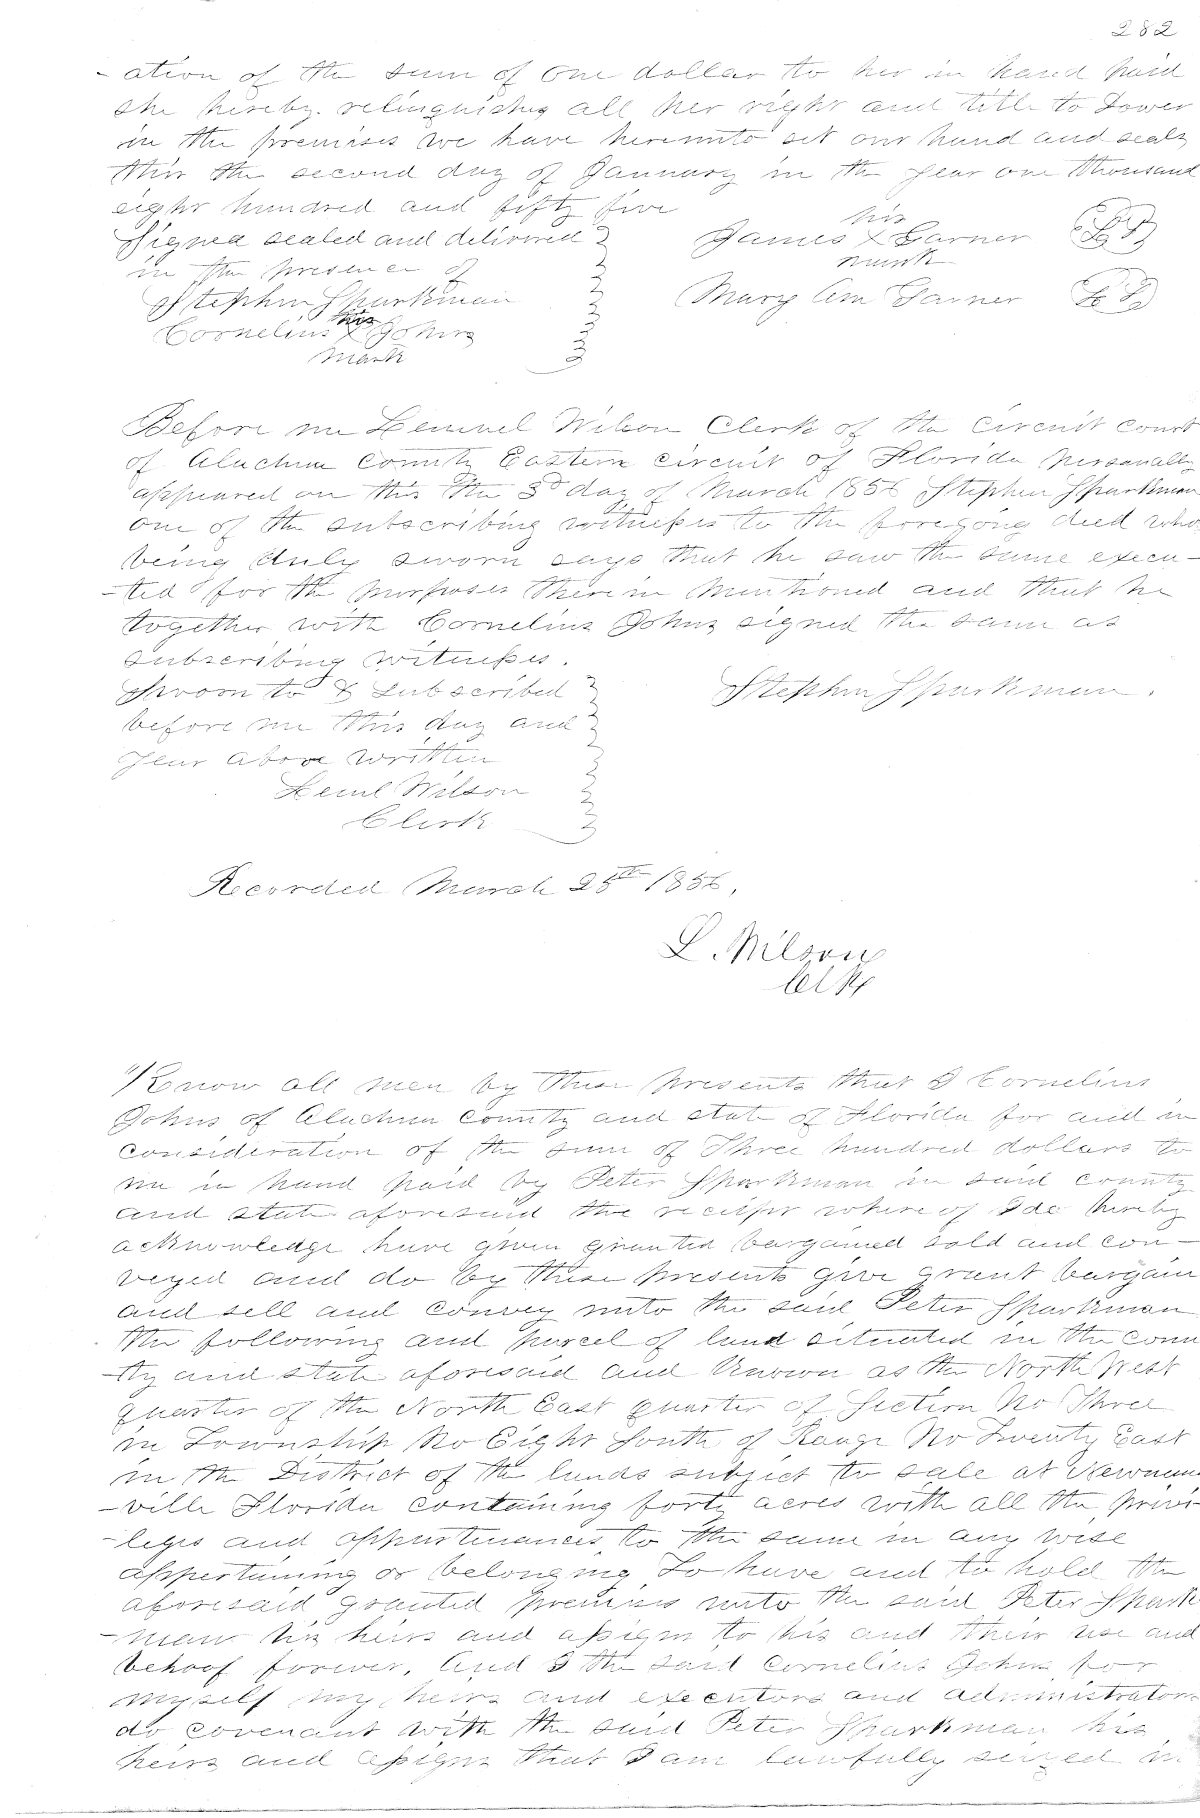 282
- ation of the sum of one dollar to her in hand paid
she hereby relinquishes all her right and title to Dower
in the premises we have hereunto set our hand and seals
this the second day of January in the year one thousand
eight hundred and fifty five
Signed sealed and delivered
in the presence of
Stephen Sparkman
his
Cornelius X Johns
mark
his
James X Garner
mark
Mary Ann Garner
Before me Lemuel Wilson Clerk of the circuit court
of Alachua county Eastern circuit of Florida personally
appeared on this the 3d day of March 1856 Stephen Sparkman
one of the subscribing witnesses to the foregoing deed who
being duly sworn says that he saw the same execu-
-ted for the purposes therein mentioned and that he
together with Cornelius Johns signed the same as
subscribing witnesses.
Sworn to & subscribed
before me this day and
year above written
Leml Wilson
Clerk
Stephen Sparkman.
Recorded March 25th 1856.
L. Wilson
Clk
"Know all men by these presents that I Cornelius
Johns of Alachua county and state of Florida for and in
consideration of the sum of Three hundred dollars to
me in hand paid by Peter Sparkman in said county
and state aforesaid the receipt where of I do hereby
acknowledge have given granted bargained sold and con-
veyed and do by these presents give grant bargain
and sell and convey unto the said Peter Sparkman
the following and parcel of land situated in the coun
-ty and state aforesaid and known as the North West
quarter of the North East quarter of Section No Three
in Township No Eight South of Range No Twenty East
in the District of the lands subject to sale at Newnans
-ville Florida containing forty acres with all the privi-
-leges and appurtenances to the same in any wise
appertaining or belonging To have and to hold the
aforesaid granted premises unto the said Peter Spark
-man his heirs and assigns to his and their use and
behoof forever. And I the said Cornelius Johns for
myself my heirs and executors and administrators
do covenant with the said Peter Sparkman his
heirs and assigns that I am lawfully seized in